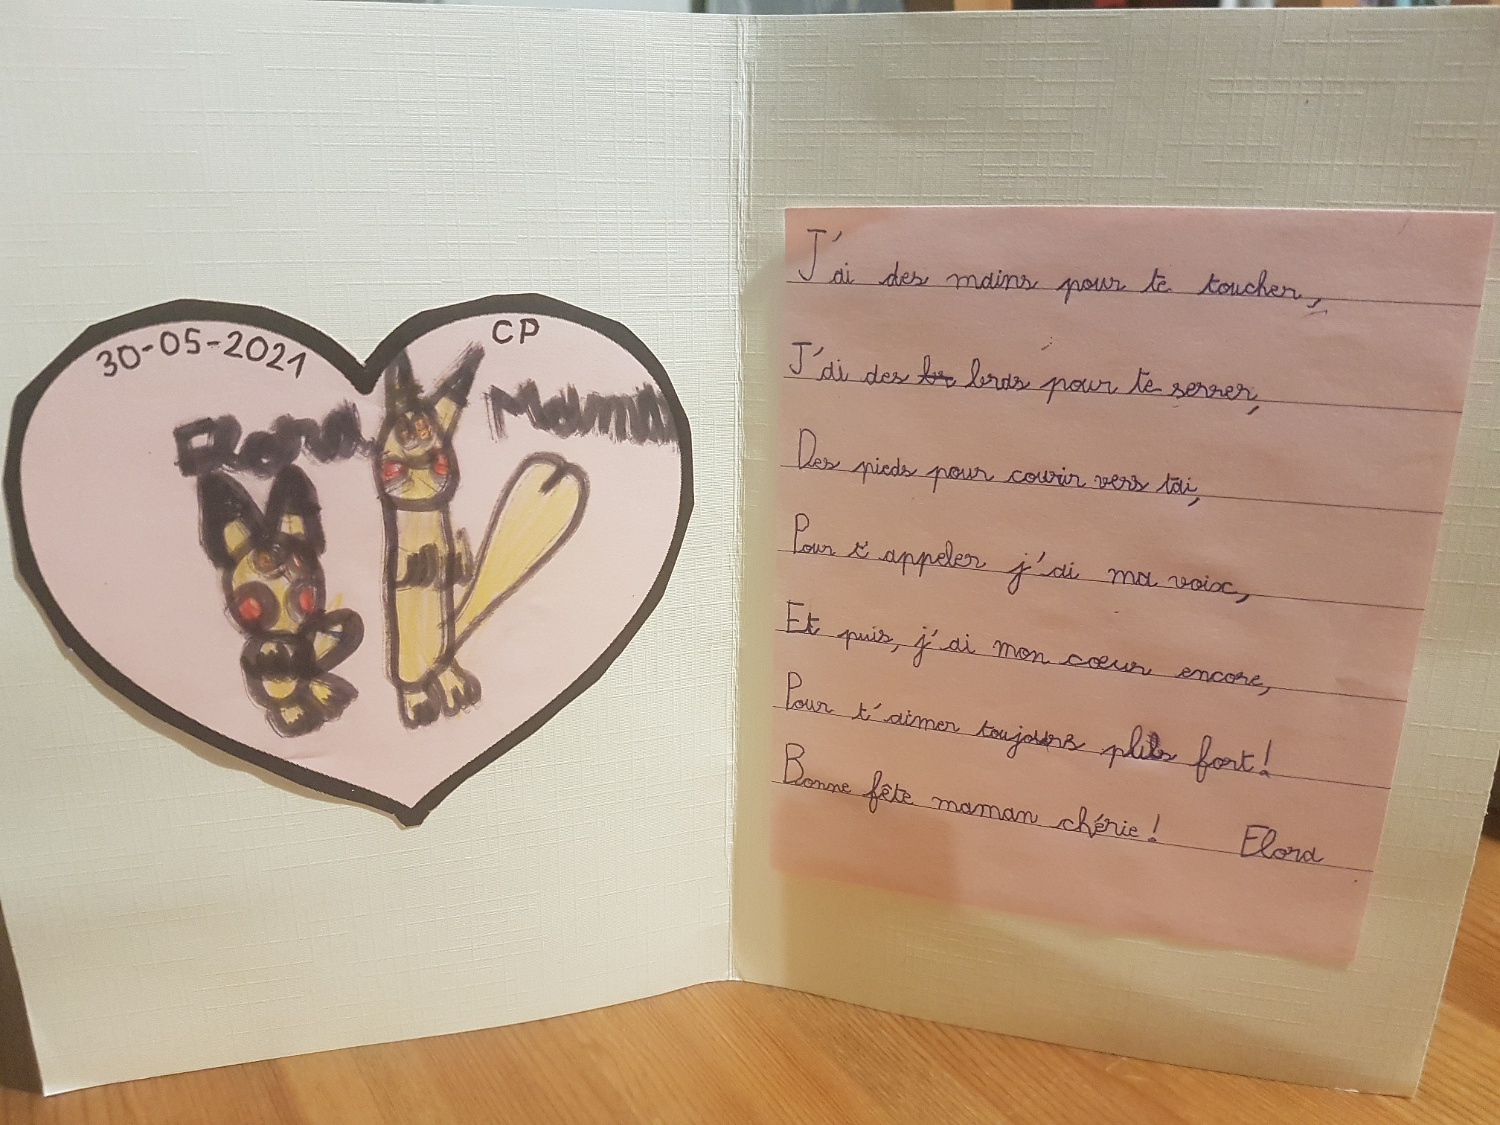 30-05-2021
CP
Elora
Maman
J'ai des mains pour te toucher,
J'ai des br bras pour te serrer,
Des pieds pour courir vers toi,
Pour t'appeler j'ai ma voix,
Et puis, j'ai mon cœur encore,
Pour t'aimer toujours plus fort!
Bonne fête maman chérie! Elora